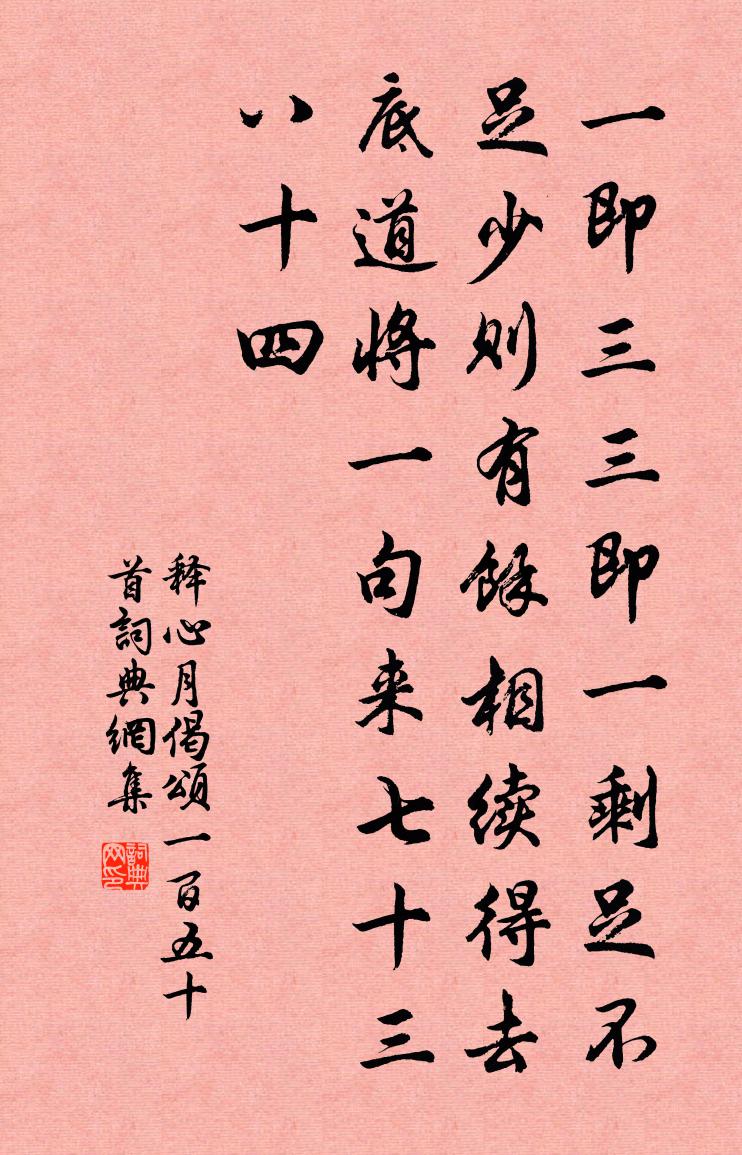 一即三三即一剩足不
足少则有餘相续得去
底道将一句来七十三
八十四
释心月偈頌一百五十
首詞典網集
詞典網印